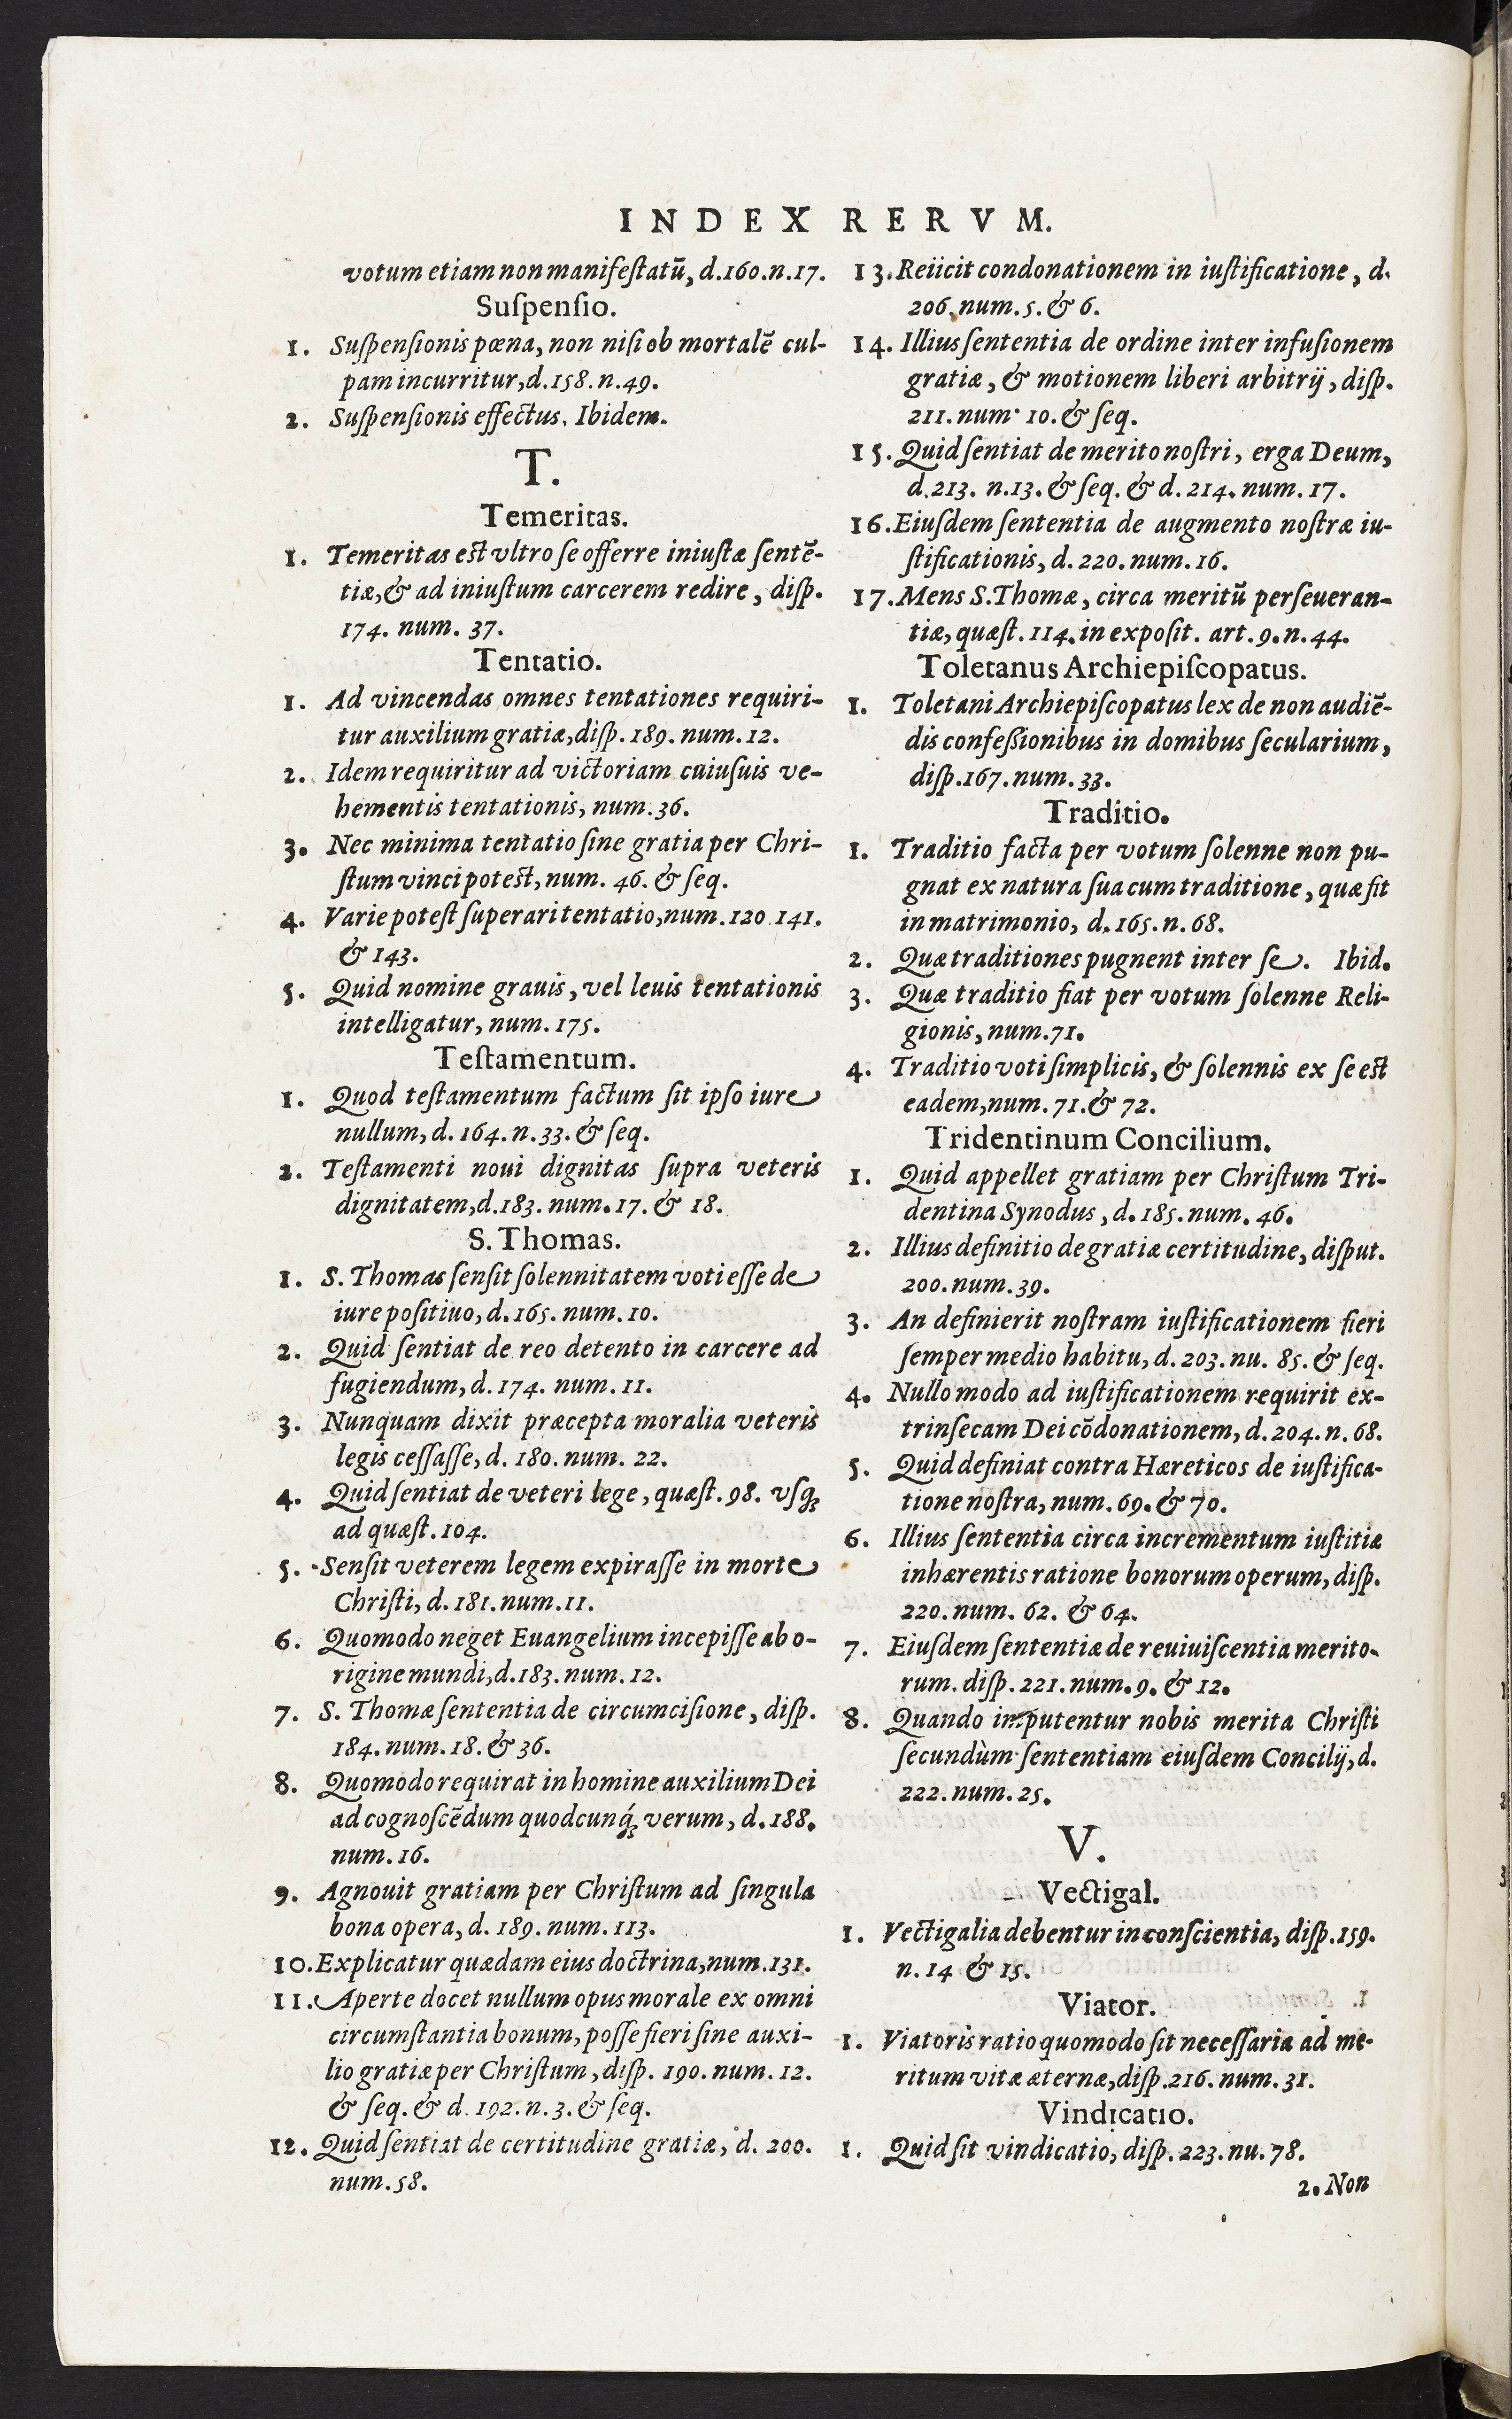 INDEX RERVM.
votum etiam non manifeſtatū, d.160.n.17.
Suſpenſio.
1. Suſpenſionis pœna, non niſi ob mortalē cul-
pam incurritur, d.158. n.49.
2. Suſpenſionis effectus. Ibidem.
T.
Temeritas.
1. Temeritas eſt vltro ſe offerre iniuſtæ ſentē-
tiæ, & ad iniuſtum carcerem redire, diſp.
174. num. 37.
Tentatio.
1. Ad vincendas omnes tentationes requiri-
tur auxilium gratiæ, diſp. 189. num. 12.
2. Idem requiritur ad victoriam cuiuſuis ve-
hementis tentationis, num. 36.
3. Nec minima tentatio ſine gratia per Chri-
ſtum vinci poteſt, num. 46. & ſeq.
4. Varie poteſt ſuperari tentatio, num. 120 141.
& 143.
5. Quid nomine grauis, vel leuis tentationis
intelligatur, num. 175.
Teſtamentum.
1. Quod teſtamentum factum ſit ipſo iure
nullum, d. 164. n. 33. & ſeq.
2. Teſtamenti noui dignitas ſupra veteris
dignitatem, d.183. num. 17. & 18.
S. Thomas.
1. S. Thomas ſenſit ſolennitatem voti eſſe de
iure poſitiuo, d. 165. num. 10.
2. Quid ſentiat de reo detento in carcere ad
fugiendum, d. 174. num. 11.
3. Nunquam dixit præcepta moralia veteris
legis ceſſaſſe, d. 180. num. 22.
4. Quid ſentiat de veteri lege, quæſt. 98. vſq;
ad quæſt. 104.
5. Senſit veterem legem expiraſſe in morte
Chriſti, d. 181. num. 11.
6. Quomodo neget Euangelium incepiſſe ab o-
rigine mundi, d.183. num. 12.
7. S. Thomæ ſententia de circumciſione, diſp.
184. num. 18. & 36.
8. Quomodo requirat in homine auxilium Dei
ad cognoſcēdum quodcunq́; verum, d. 188.
num. 16.
9. Agnouit gratiam per Chriſtum ad ſingula
bona opera, d. 189. num. 113.
10. Explicatur quædam eius doctrina, num. 131.
11. Aperte docet nullum opus morale ex omni
circumſtantia bonum, poſſe fieri ſine auxi-
lio gratiæ per Chriſtum, diſp. 190. num. 12.
& ſeq. & d. 192. n. 3. & ſeq.
12. Quid ſentiat de certitudine gratiæ, d. 200.
num. 58.
13. Reiicit condonationem in iuſtificatione, d.
206. num. 5. & 6.
14. Illius ſententia de ordine inter infuſionem
gratiæ, & motionem liberi arbitrij, diſp.
211. num. 10. & ſeq.
15. Quid ſentiat de merito noſtri, erga Deum,
d.213. n.13. & ſeq. & d. 214. num. 17.
16. Eiuſdem ſententia de augmento noſtræ iu-
ſtificationis, d. 220. num. 16.
17. Mens S. Thomæ, circa meritū perſeueran-
tiæ, quæſt. 114. in expoſit. art. 9. n. 44.
Toletanus Archiepiſcopatus.
1. Toletani Archiepiſcopatus lex de non audiē-
dis confeßionibus in domibus ſecularium,
diſp. 167. num. 33.
Traditio.
1. Traditio facta per votum ſolenne non pu-
gnat ex natura ſua cum traditione, quæ fit
in matrimonio, d. 165. n. 68.
2. Quæ traditiones pugnent inter ſe. Ibid.
3. Quæ traditio fiat per votum ſolenne Reli-
gionis, num. 71.
4. Traditio voti ſimplicis, & ſolennis ex ſe eſt
eadem, num. 71. & 72.
Tridentinum Concilium.
1. Quid appellet gratiam per Chriſtum Tri-
dentina Synodus, d. 185. num. 46.
2. Illius definitio de gratiæ certitudine, diſput.
200. num. 39.
3. An definierit noſtram iuſtificationem fieri
ſemper medio habitu, d. 203. nu. 85. & ſeq.
4. Nullo modo ad iuſtificationem requirit ex-
trinſecam Dei cōdonationem, d. 204. n. 68.
5. Quid definiat contra Hæreticos de iuſtifica-
tione noſtra, num. 69. & 70.
6. Illius ſententia circa incrementum iuſtitiæ
inhærentis ratione bonorum operum, diſp.
220. num. 62. & 64.
7. Eiuſdem ſententiæ de reuiuiſcentia merito-
rum. diſp. 221. num. 9. & 12.
8. Quando imputentur nobis merita Chriſti
ſecundùm ſententiam eiuſdem Concilij, d.
222. num. 25.
V.
Vectigal.
1. Vectigalia debentur in conſcientia, diſp. 159.
n. 14 & 15.
Viator.
1. Viatoris ratio quomodo ſit neceſſaria ad me-
ritum vitæ æternæ, diſp. 216. num. 31.
Vindicatio.
1. Quid ſit vindicatio, diſp. 223. nu. 78.
2. Non